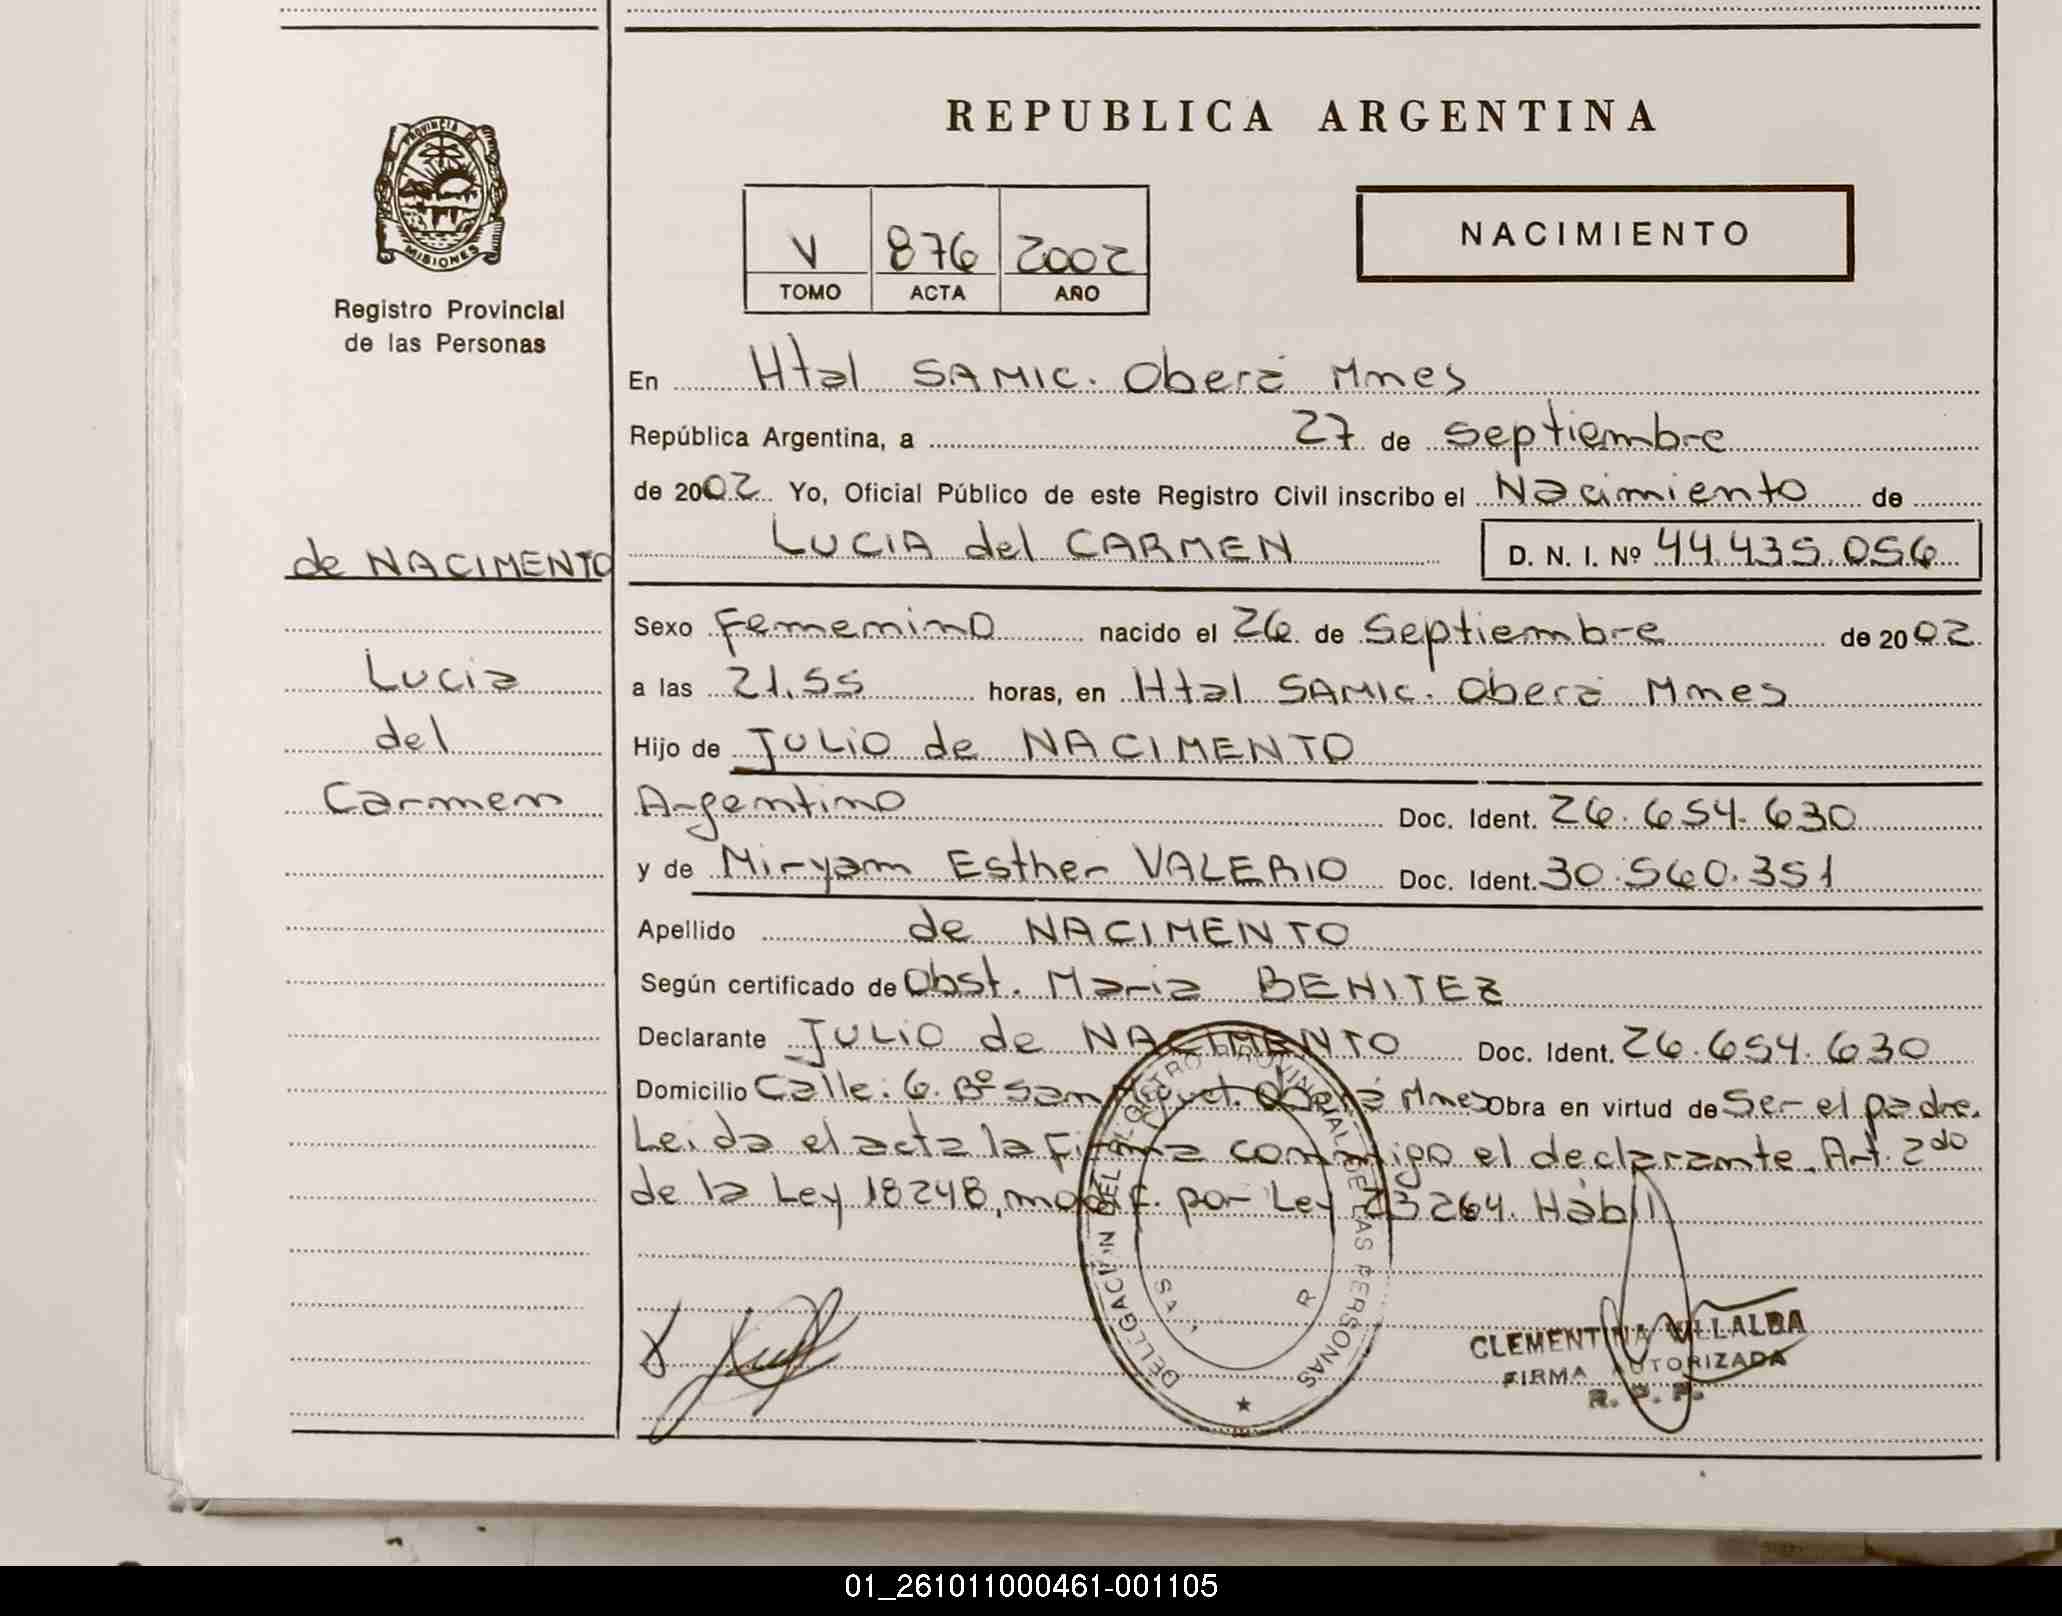 REPUBLICA ARGENTINA
PROVINCIA DE
MISIONES
Registro Provincial
de las Personas
NACIMIENTO
V 876 2002
TOMO ACTA AÑO
En Htal SAMIC. Oberá Mnes
República Argentina, a 27 de septiembre
de 2002 Yo, Oficial Público de este Registro Civil inscribo el Nacimiento de
LUCIA del CARMEN D. N. I. Nº 44.435.056
de NACIMENTO
Lucia
del
Carmen
Sexo Femenino nacido el 26 de Septiembre de 2002
a las 21.55 horas, en Htal SAMIC. Oberá Mnes
Hijo de JULIO de NACIMENTO
Argentino Doc. Ident. 26.654.630
y de Miryam Esther VALERIO Doc. Ident. 30.560.351
Apellido de NACIMENTO
Según certificado de Obst. Maria BENITEZ
Declarante JULIO de NACIMENTO Doc. Ident. 26.654.630
Domicilio Calle: 6. Bº San Miguel. Oberá Mnes Obra en virtud de Ser el padre.
Leida el acta la Firma conmigo el declarante. Art. 2do
de la Ley 18248, modif. por Ley 23264. Hábil
REGISTRO PROVINCIAL DE LAS PERSONAS
CLEMENTINA VILLALBA
FIRMA AUTORIZADA
R. P. P.
01_261011000461-001105